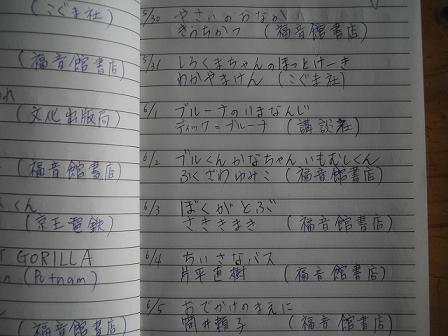 (こぐま社)
(福音館書店)
(文化出版局)
(福音館書店)
くん
(京王電鉄)
GORILLA
(Putnam)
(福音館書店)
5/30 やさいのおなか
きうちかつ (福音館書店)
5/31 しろくまちゃんのほっとけーき
わかやまけん (こぐま社)
6/1 ブルーナのいまなんじ
ディック=ブルーナ (講談社)
6/2 ブルくんかなちゃん いもむしくん
ふくざわゆみこ (福音館書店)
6/3 ぼくがとぶ
ささきまき (福音館書店)
6/4 ちいさなバス
片平直樹 (福音館書店)
6/5 おでかけのまえに
筒井頼子 (福音館書店)